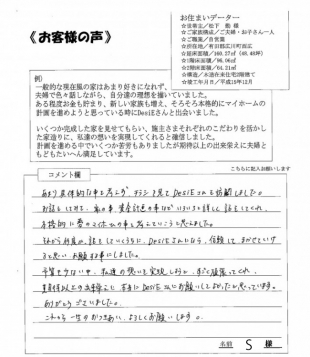 《お客様の声》
お住まいデーター
☆世帯主／松下 勉 様
☆ご家族構成／ご夫婦・お子さん一人
☆ご職業／自営業
☆住所／有田郡広川町西広
☆延床面積／160.27㎡（48.48坪）
☆1階床面積／96.06㎡
☆2階床面積／64.21㎡
☆構造／木造在来住宅2階建て
☆竣工年月日／平成15年12月
例）
一般的な現在風の家はあまり好きになれず、
夫婦で色々話しながら、自分達の理想を描いていました。
ある程度お金も貯まり、新しい家族も増え、そろそろ本格的にマイホームの
計画を進めようと思っている時にDesiEさんと出会いました。
いくつか完成した家を見せてもらい、施主さまそれぞれのこだわりを活かし
た家造りに、私達の想いを実現してくれると確信しました。
計画を進める中でいくつか苦労もありましたが期待以上の出来栄えに夫婦と
もどもたいへん満足しています。
こちらに記入お願いします
コメント欄
あまり具体的な事も考えず チラシを見て DesiEさんを訪問しました。
お話をしてみて、家の事、資金計画の事などいろいろと詳しく話をしてくれ、
本格的に夢のマイホームの事を考えていこうと思えました。
それから何度か話をしていくうちに、DesiEさんになら、信頼して まかせていけ
ると思い お願いする事にしました。
予算も少ない中、私達の想いを実現しようと、すごく頑張ってくれ、
期待以上の出来栄えに 本当に DesiEさんにお願いしてよかったと思っています。
ありがとうございました。
これから一生のおつきあい、よろしくお願いします。
名前 S 様